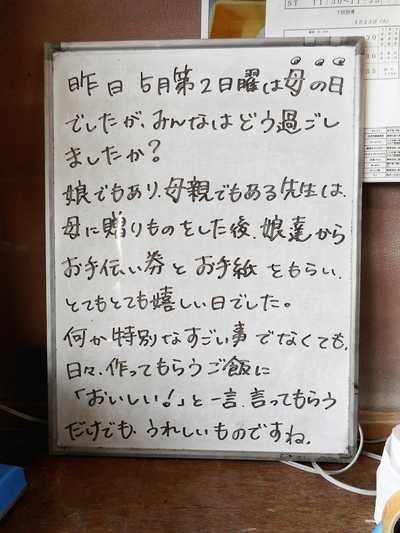 昨日 5月第2日曜は母の日
でしたが、みんなはどう過ごし
ましたか?
娘でもあり、母親でもある先生は、
母に贈りものをした後、娘達から
お手伝い券とお手紙をもらい、
とてもとても嬉しい日でした。
何か特別なすごい事でなくても、
日々、作ってもらうご飯に
「おいしい!」と一言、言ってもらう
だけでも、うれしいものですね。